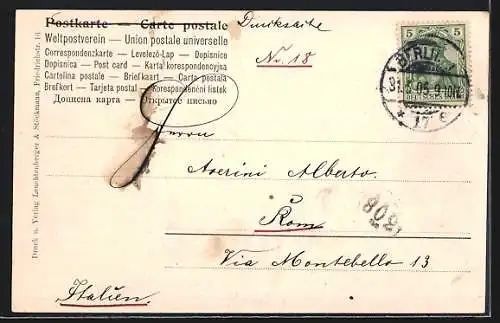 Postkarte — Carte postale
Drucksache
Weltpostverein — Union postale universelle
Correspondenzkarte — Levelező-Lap — Dopisnice
Dopisnica — Post card — Karta korespondencyjna
Cartolina postale — Briefkaart — Carta postala
Brefkort — Tarjeta postal — Korespondenční lístek
Дописна карта — Открытое письмо
Nr. 18
5 5
DEUTSCHES REICH
BERLIN
* 17
Herrn
Averini Alberto.
Rom
Via Montebello 13
Italien.
308
Druck u. Verlag Leuchtenberger & Stöckmann, Friedrichstr. 16